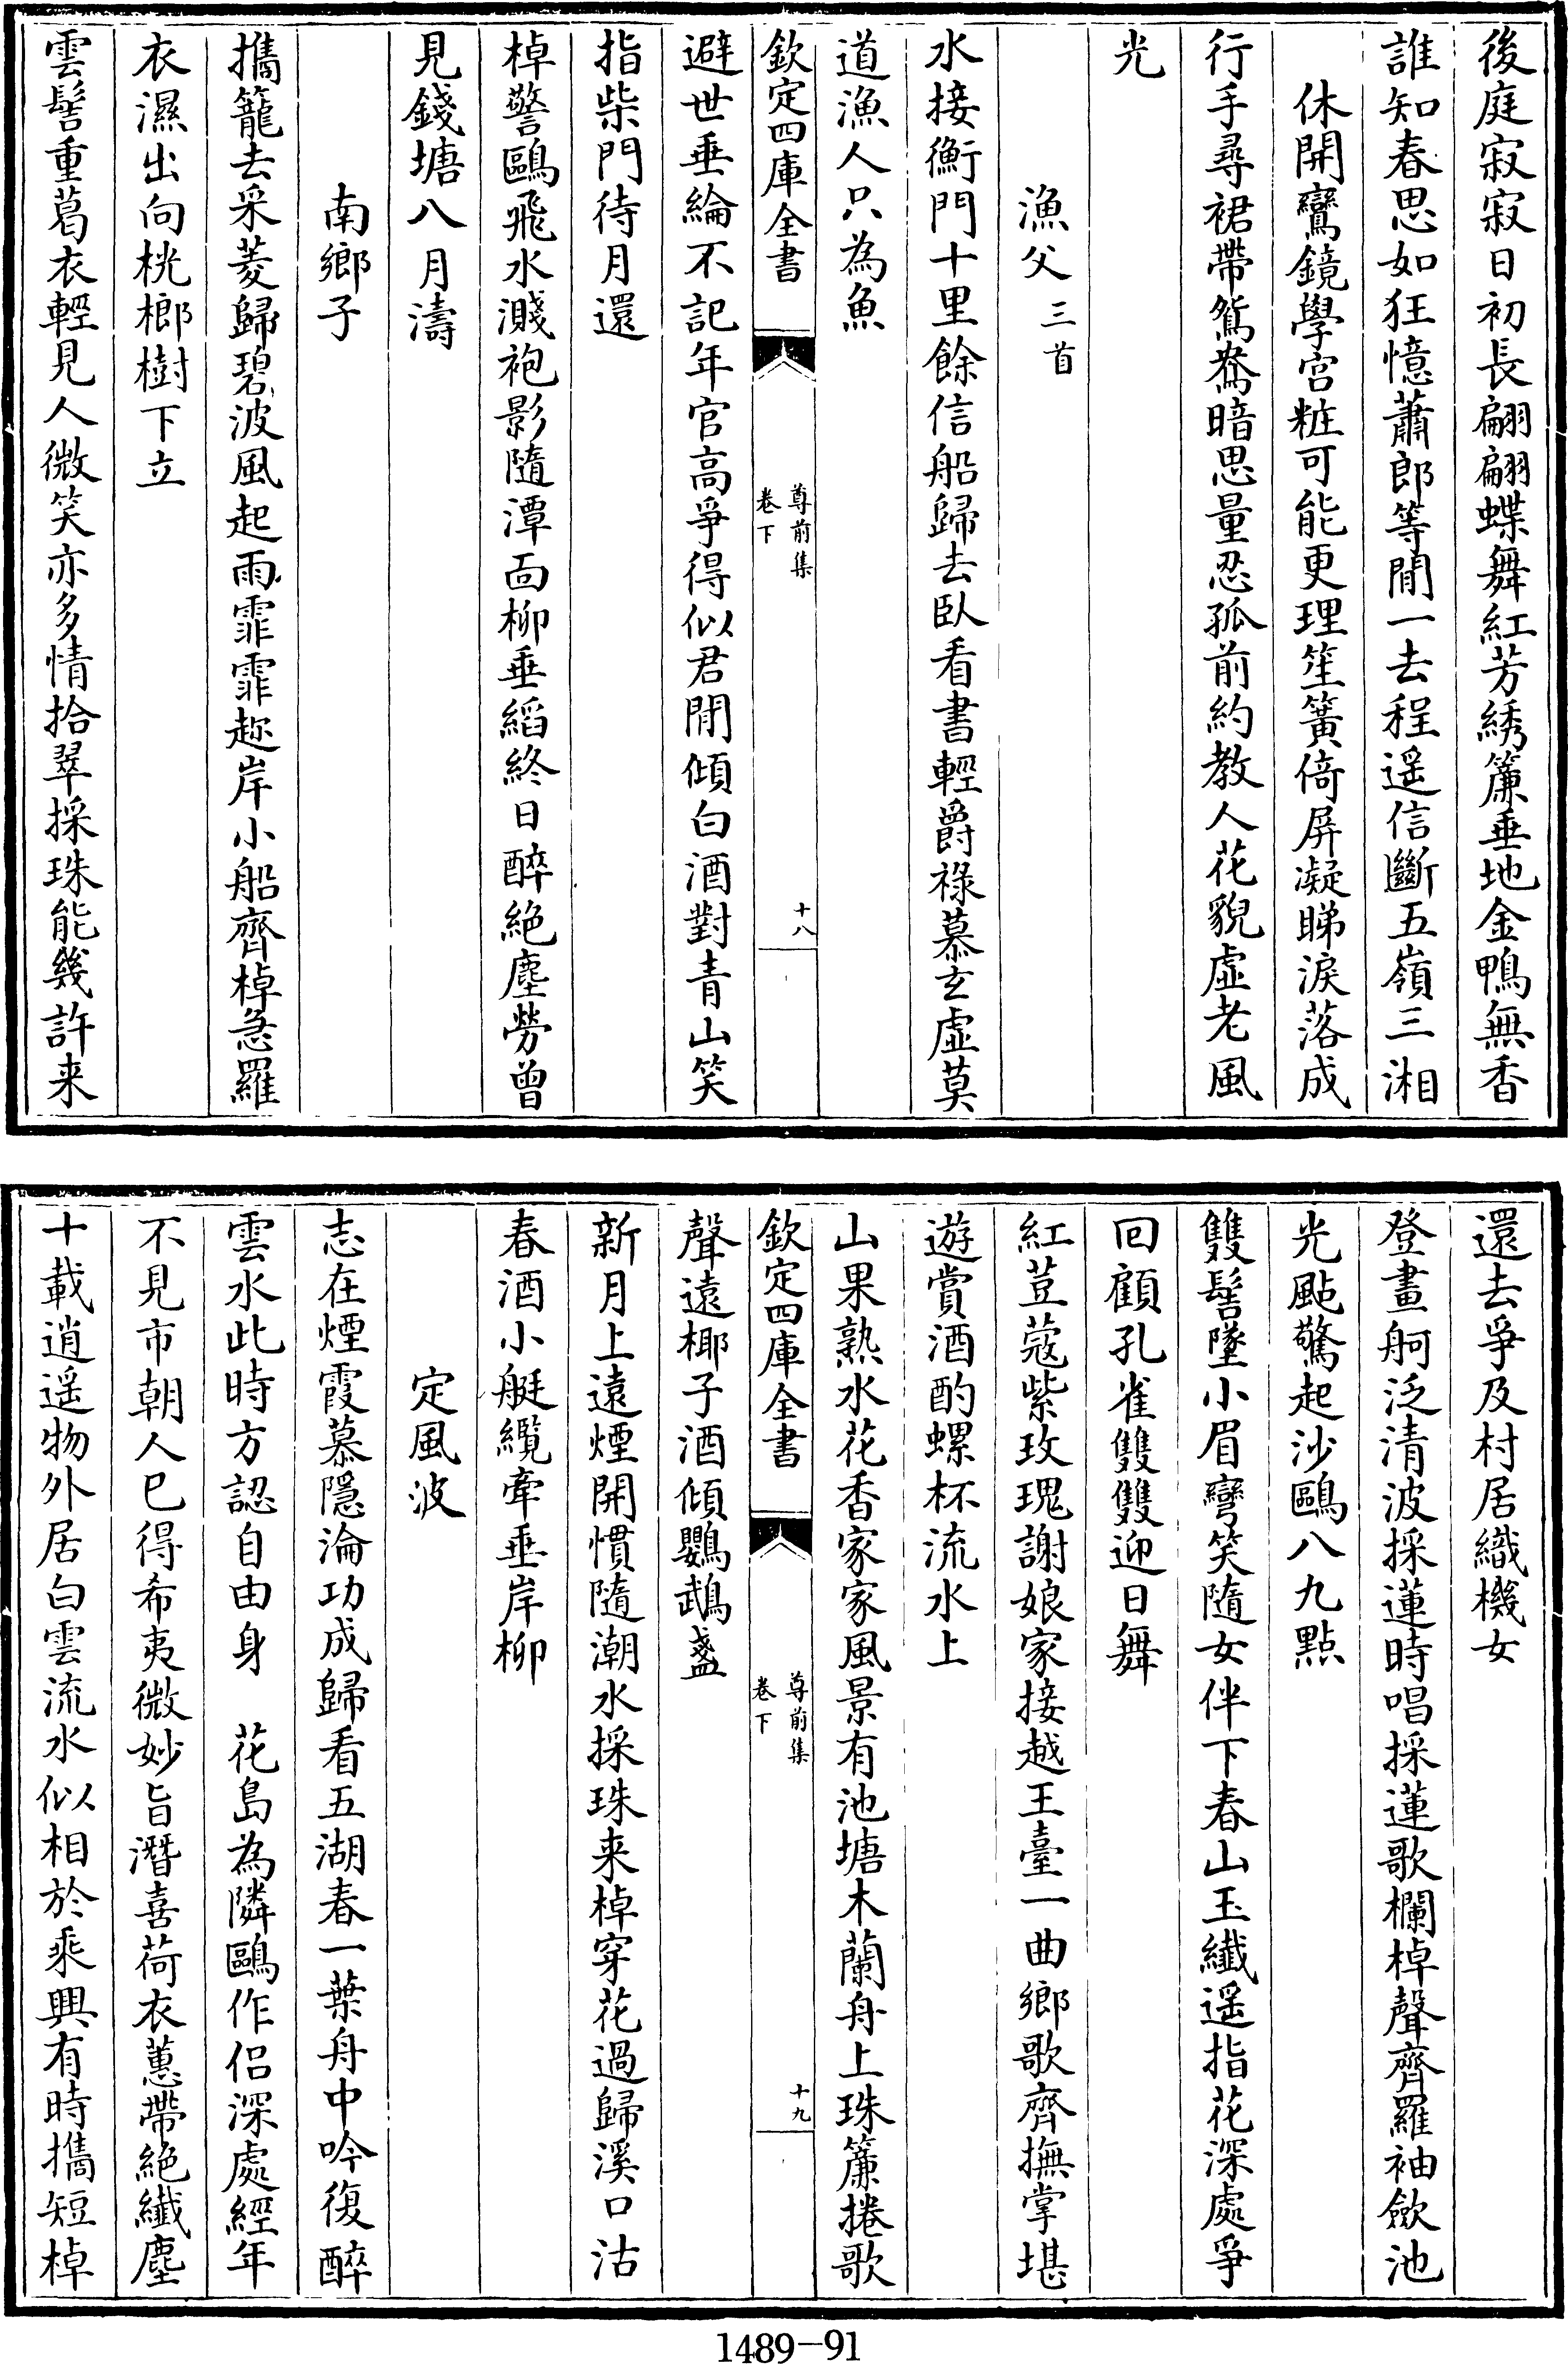 後庭寂寂日初長翩翩蝶舞紅芳綉簾垂地金鴨無香
誰知春思如狂憶蕭郎等閒一去程遥信斷五嶺三湘
休開鸞鏡學宮粧可能更理笙簧倚屏凝睇淚落成
行手尋裙帶鴛鴦暗思量忍孤前約教人花貌虚老風
光
漁父三首
水接衡門十里餘信船歸去臥看書輕爵祿慕玄虚莫
道漁人只為魚
欽定四庫全書
尊前集
卷下
十八
避世垂綸不記年官高爭得似君閒傾白酒對青山笑
指柴門待月還
棹警鷗飛水濺袍影隨潭面柳垂縚終日醉絕塵勞曾
見錢塘八月濤
南鄉子
攜籠去采菱歸碧波風起雨霏霏趂岸小船齊棹急羅
衣濕出向桄榔樹下立
雲髻重葛衣輕見人微笑亦多情拾翠採珠能幾許来
還去爭及村居織機女
登畫舸泛清波採蓮時唱採蓮歌欄棹聲齊羅袖歛池
光颭驚起沙鷗八九點
雙髻墜小眉彎笑隨女伴下春山玉纖遥指花深處爭
回顧孔雀雙雙迎日舞
紅荳蔻紫玫瑰謝娘家接越王臺一曲鄉歌齊撫掌堪
遊賞酒酌螺杯流水上
山果熟水花香家家風景有池塘木蘭舟上珠簾捲歌
欽定四庫全書
尊前集
卷下
十九
聲遠椰子酒傾鸚鵡盞
新月上遠煙開慣隨潮水採珠来棹穿花過歸溪口沽
春酒小艇纜牽垂岸柳
定風波
志在煙霞慕隱淪功成歸看五湖春一葉舟中吟復醉
雲水此時方認自由身　花島為隣鷗作侣深處經年
不見市朝人已得希夷微妙旨潛喜荷衣蕙帶絕纖塵
十載逍遥物外居白雲流水似相於乘興有時攜短棹
1489-91